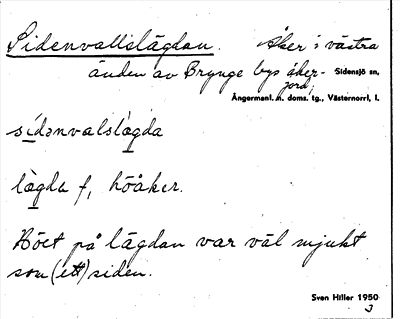 Sidenvallslägdan. Åker i västra
änden av Brynge bys åker- Sidensjö sn,
jord,
Ångermanl. n. doms. tg., Västernorrl, l.
sídənvalslägda
lägda f, höåker.
Höet på lägdan var väl mjukt
som (ett) siden.
Sven Hiller 1950
3